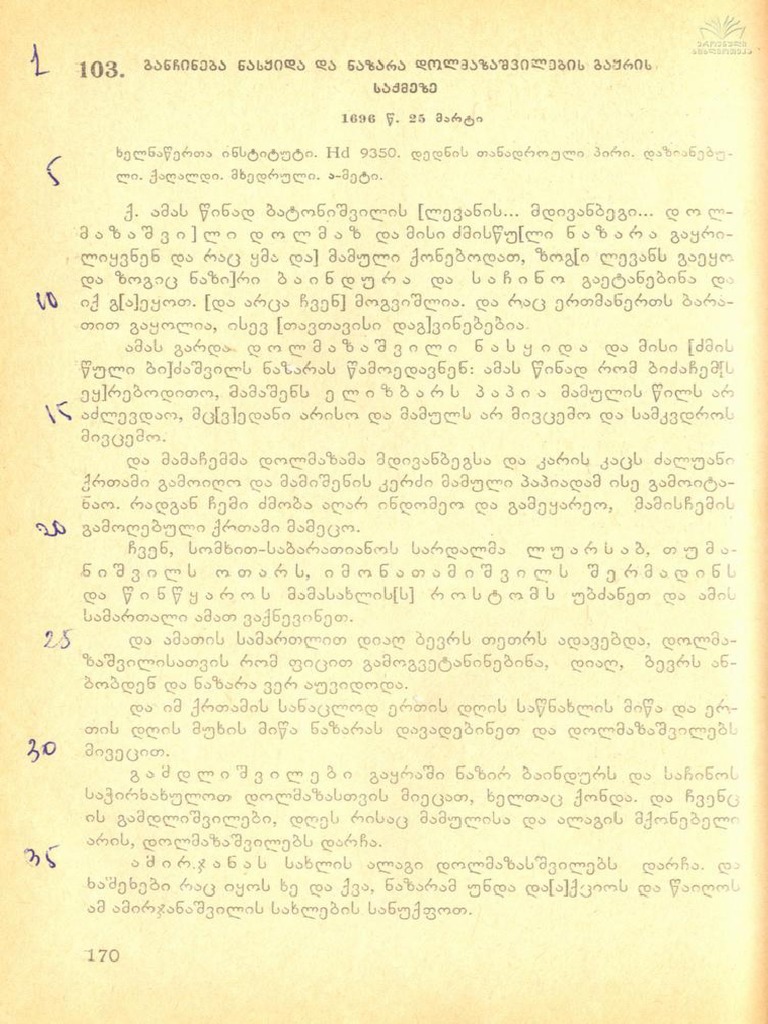 ეროვნული
ბიბლიოთეკა
1
103. განჩინება ნასყიდა და ნაზარა დოლმაზაშვილების გაყრის
საქმეზე
1696 წ. 25 მარტი
5
ხელნაწერთა ინსტიტუტი. Hd 9350. დედნის თანადროული პირი. დაზიანებუ-
ლი. ქაღალდი. მხედრული. ა-მეტი.
ქ. ამას წინად ბატონიშვილის [ლევანის... მდივანბეგი... დოლ-
მაზაშვი]ლი დოლმაზ და მისი ძმისწუ[ლი ნაზარა გაყრი-
ლიყვნენ და რაც ყმა და] მამული ქონებოდათ, ზოგ[ი ლევანს გაეყო
და ზოგიც ნაზი]რი ბაინდურა და საჩინო გაეტანებინა და
10
იქ გ[ა]ეყოთ. [და არცა ჩვენ] მოგვიშლია. და რაც ერთმანერთს ბარა-
თით გაყოლია, ისევ [თავთავისი დაგ]ვინებებია.
ამას გარდა დოლმაზაშვილი ნასყიდა და მისი [ძმის
წული ბი]ძაშვილს ნაზარას წამოედავნენ: ამას წინად რომ ბიძაჩემ[ს
ეყ]რებოდითო, მამაშენს ელიზბარს პაპია მამულის წილს არ
15
აძლევდაო, მც[ვ]ედანი არისო და მამულს არ მივცემო და სამკვდროს
მივცემო.
და მამაჩემმა დოლმაზამა მდივანბეგსა და კარის კაცს ძალუანი
ქრთამი გამოიღო და მამიშენის კერძი მამული პაპიადამ ისე გამოიტა-
ნაო. რადგან ჩემი ძმობა აღარ ინდომეო და გამეყარეო, მამისჩემის
20
გამოღებული ქრთამი მამეცო.
ჩვენ, სომხით-საბარათიანოს სარდალმა ლუარსაბ, თუმა-
ნიშვილს ოთარს, იმონათამიშვილს შერმადინს
და წინწყაროს მამასახლის[ს] როსტომს უბძანეთ და ამის
სამართალი ამათ ვაქნევინეთ.
25
და ამათის სამართლით დიაღ ბევრს თეთრს ადავებდა, დოლმა-
ზაშვილისათვის რომ ფიცით გამოგვეტანინებინა, დიაღ, ბევრს ან-
ბობდენ და ნაზარა ვერ აუვიდოდა.
და იმ ქრთამის სანაცლოდ ერთის დღის საწნახლის მიწა და ერ-
თის დღის მუხის მიწა ნაზარას დავადებინეთ და დოლმაზაშვილებს
30
მივეცით.
გამდლიშვილები გაყრაში ნაზირ ბაინდურს და საჩინოს
საჭირხახულოთ დოლმაზასთვის მიეცათ, ხელთაც ქონდა. და ჩვენც
ის გამდლიშვილები, დღეს რისაც მამულისა და ალაგის მქონებელი
არის, დოლმაზაშვილებს დარჩა.
35
ამირჯანას სახლის ალაგი დოლმაზასშვილებს დარჩა. და
ხაშეხები რაც იყოს ხე და ქვა, ნაზარამ უნდა და[ა]ქციოს და წაიღოს
ამ ამირჯანაშვილის სახლების სანუქფოთ.
170